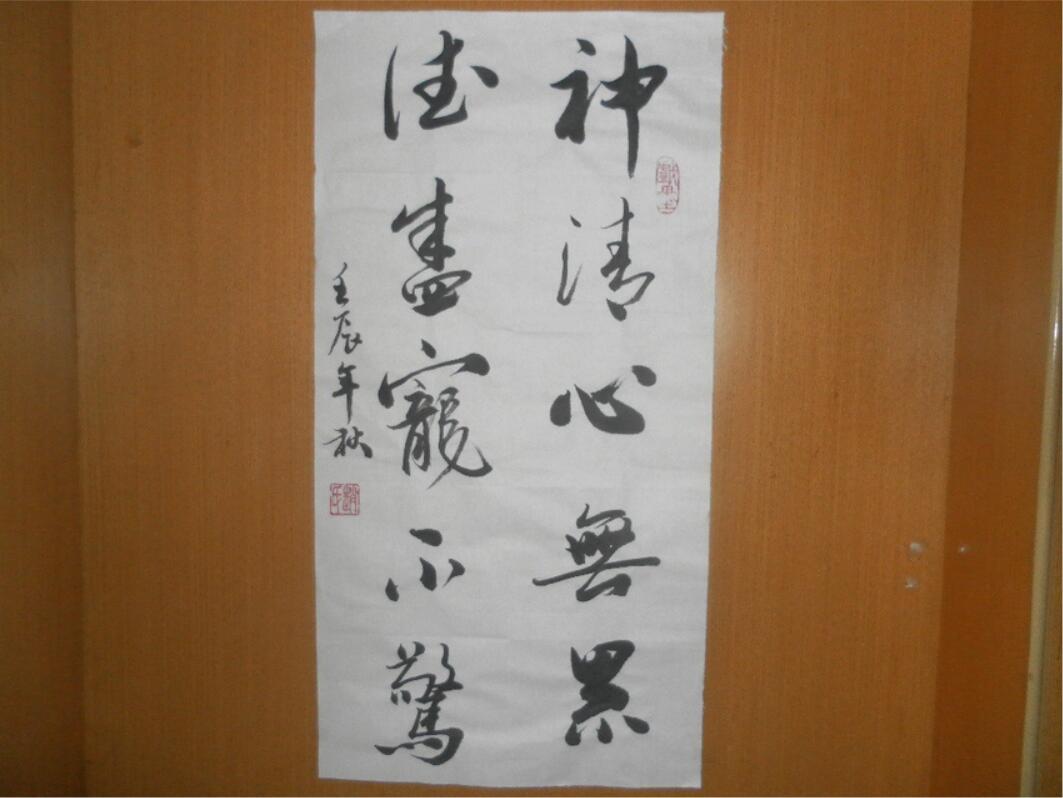 神清心無累
德盛寵不驚
壬辰年秋